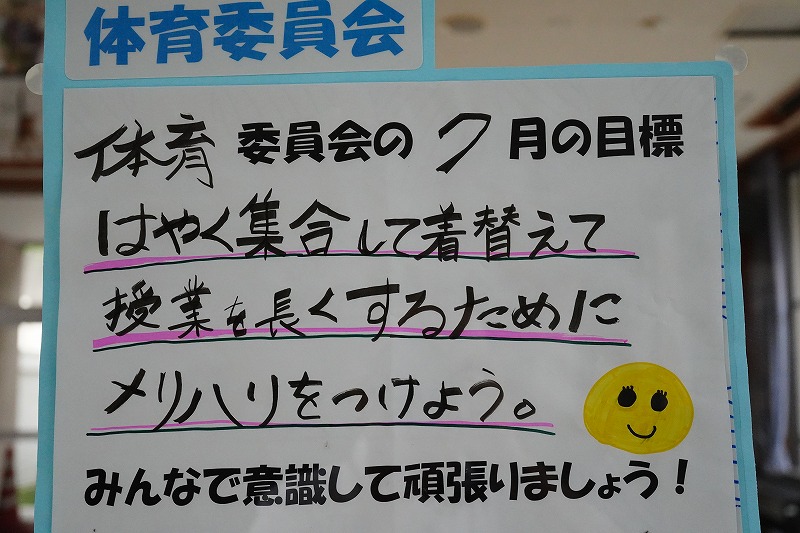 体育委員会
体育 委員会の 7 月の目標
はやく集合して着替えて
授業を長くするために
メリハリをつけよう。
みんなで意識して頑張りましょう！